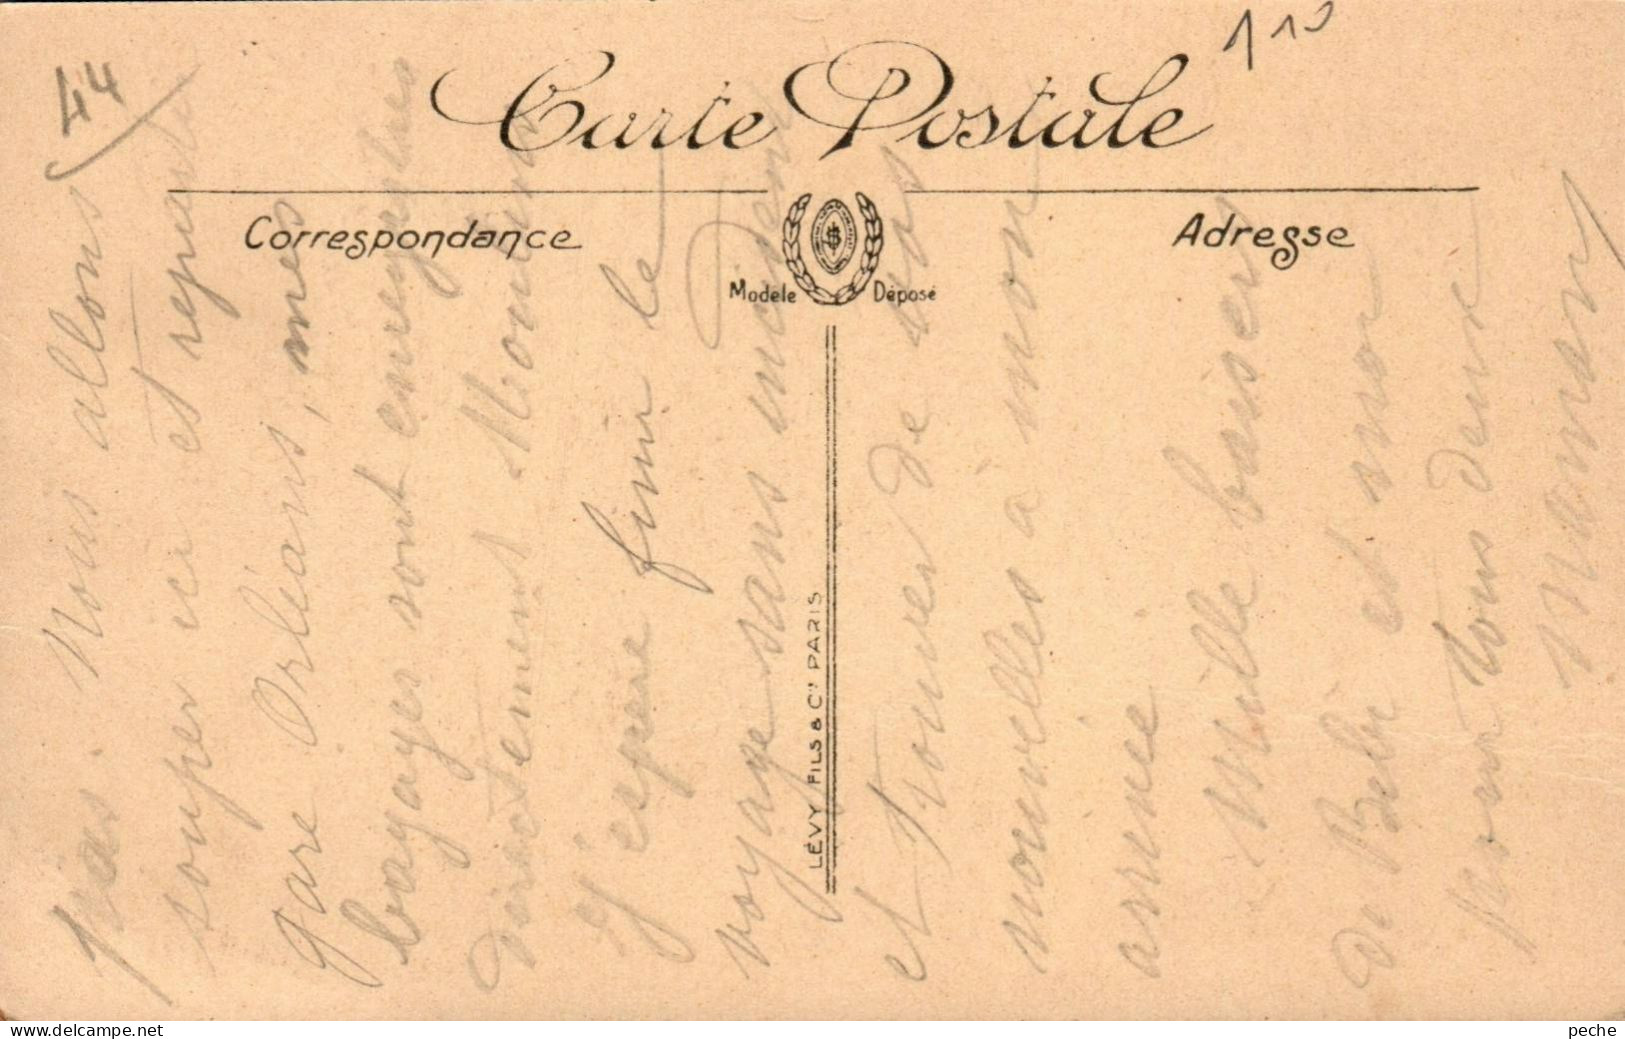 44
110
Carte Postale
Correspondance
Adresse
Modèle Déposé
LÉVY FILS & Cie PARIS
pas. Nous allons
souper ici et repartir
gare Orléans, mes
bagages sont enregistrés
directement
J'espère finir le
voyage sans incident
et trouver de vos
nouvelles à mon
arrivée
Mille baisers
de Bébé et moi
pour tous deux
Maman
www.delcampe.net
peche